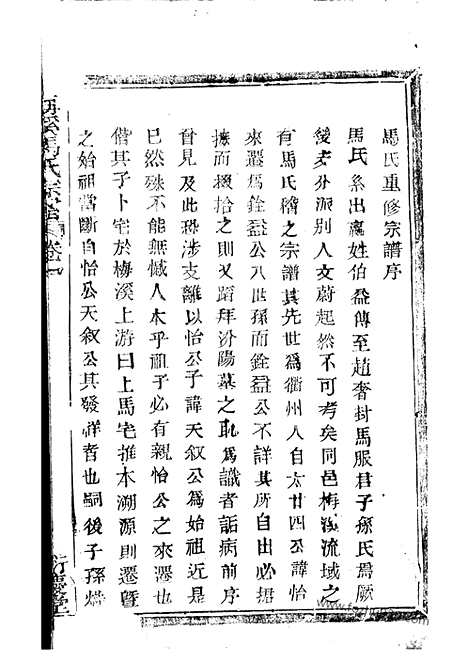 馬氏重修宗譜序
馬氏系出嬴姓伯益傳至趙奢封馬服君子孫氏焉厥
後支分派別人文蔚起然不可考矣同邑梅溪流域之
有馬氏稽之宗譜其先世爲衢州人自太廿四公諱怡
來遷爲銓益公八世孫而銓益公不詳其所自出必捃
摭而掇拾之則又蹈拜汾陽墓之恥爲識者詬病前序
曾見及此恐涉支離以怡公子諱天叙公爲始祖近是
已然殊不能無憾人本乎祖子必有親怡公之來遷也
偕其子卜宅於梅溪上游曰上馬宅推本溯源則遷暨
之始祖當斷自怡公天叙公其發祥者也嗣後子孫熾
馬氏宗譜 卷一
衍慶堂